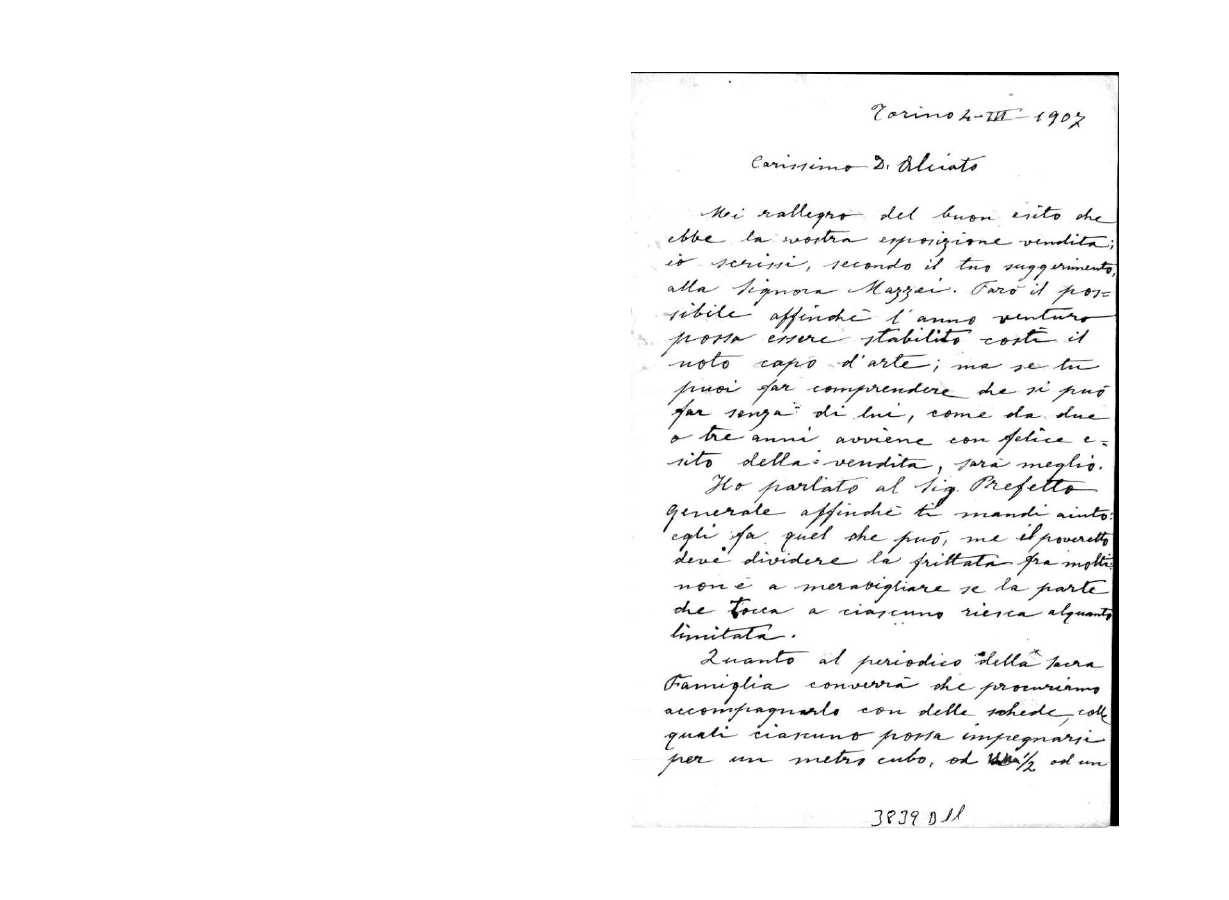 Torino 4-III-1907
Carissimo D. Aliciato
Mi rallegro del buon esito che
ebbe la vostra esposizione vendita;
io scrissi, secondo il tuo suggerimento,
alla Signora Mazzei. Farò il pos=
sibile affinchè l'anno venturo
possa essere stabilito costì il
noto capo d'arte; ma se tu
puoi far comprendere che si può
far senza di lui, come da due
o tre anni avviene con felice e=
sito della vendita, sarà meglio.
Ho parlato al Sig. Prefetto
generale affinchè ti mandi aiuto:
egli fa quel che può, me il poveretto
deve dividere la frittata fra molti:
non è a meravigliare se la parte
che tocca a ciascuno riesca alquanto
limitata.
Quanto al periodico della Sacra
Famiglia converrà che procuriamo
accompagnarlo con delle schede, colle
quali ciascuno possa impegnarsi
per un metro cubo, od 1/2 od un
3839 D11